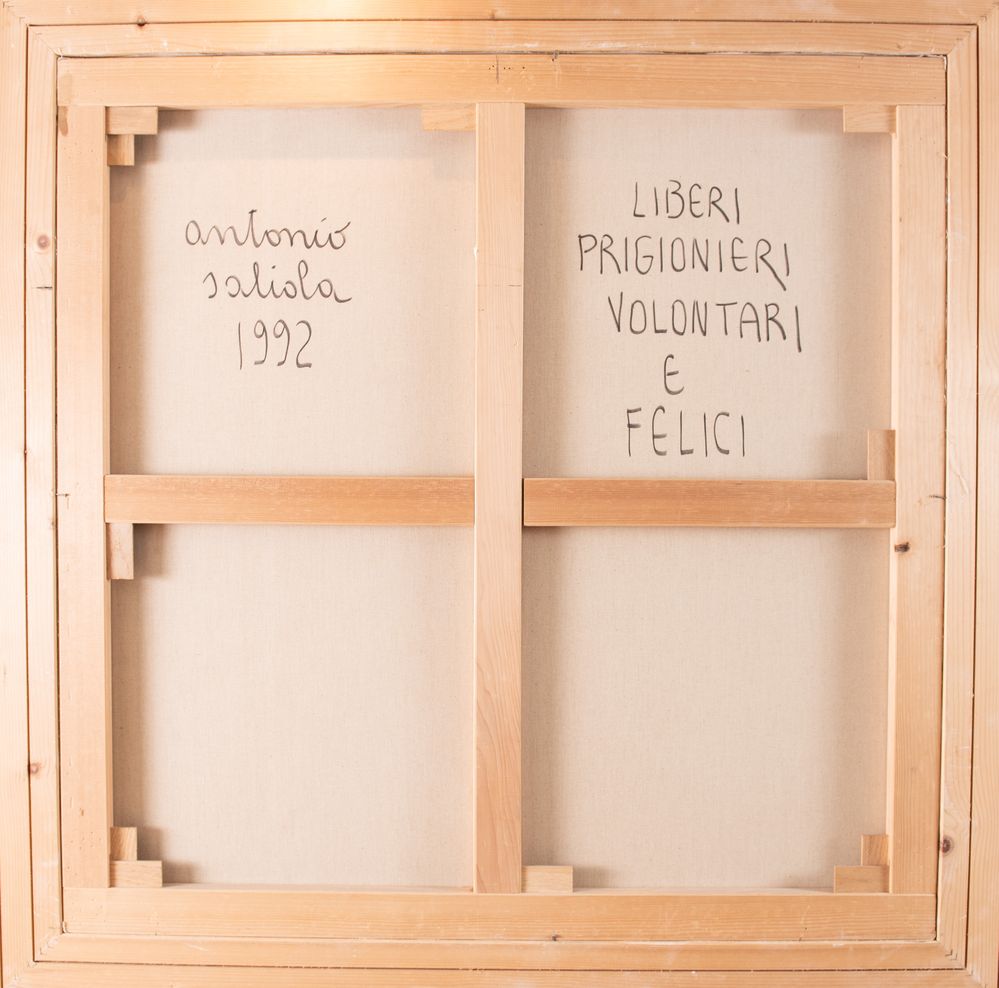 antonio
saliola
1992
LIBERI
PRIGIONIERI
VOLONTARI
E
FELICI